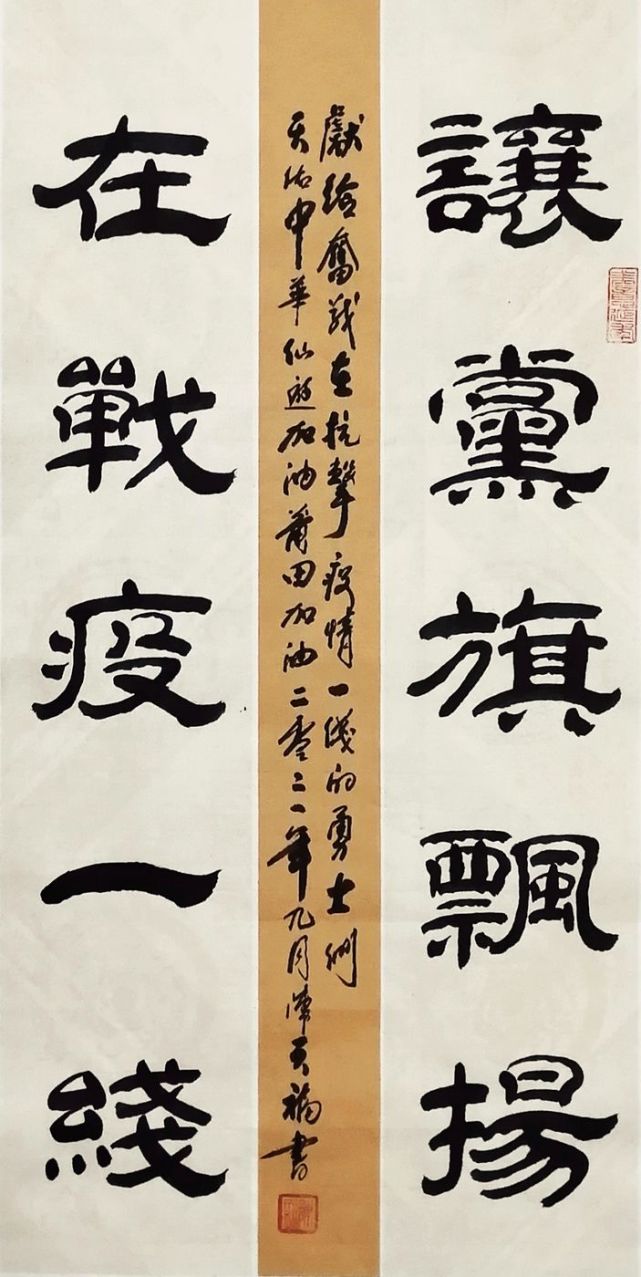 讓黨旗飄揚
獻給奮戰在抗擊疫情一綫的勇士们
天佑中華仙遊加油莆田加油二零二一年九月陳天福書
在戰疫一綫